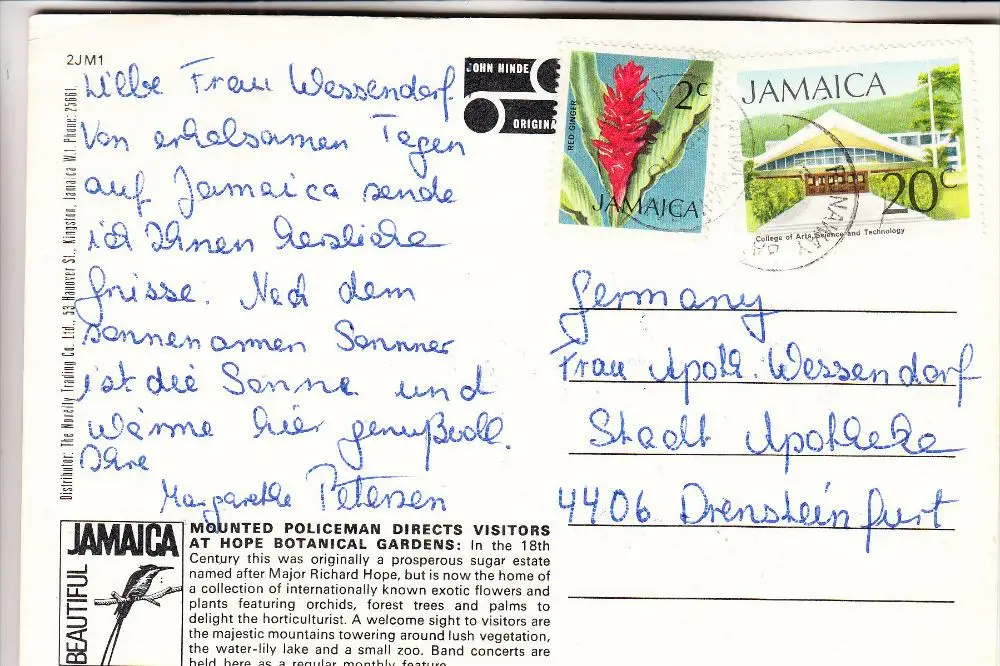 2JM1
Liebe Frau Wessendorf
Von erholsamen Tagen
auf Jamaica sende
ich Ihnen herzliche
Grüsse. Nach dem
sonnenarmen Sommer
ist die Sonne und
Wärme hier genußvoll.
Ihre
Margarethe Petersen
Distributor: The Novelty Trading Co., Ltd., 53 Hanover St., Kingston, Jamaica W.I. Phone: 25661.
JOHN HINDE
ORIGINA
RED GINGER
2c
JAMAICA
JAMAICA
20c
College of Arts, Science and Technology
Germany
Frau Apoth. Wessendorf
Stadt Apotheke
4406 Drensteinfurt
BEAUTIFUL
JAMAICA
MOUNTED POLICEMAN DIRECTS VISITORS
AT HOPE BOTANICAL GARDENS: In the 18th
Century this was originally a prosperous sugar estate
named after Major Richard Hope, but is now the home of
a collection of internationally known exotic flowers and
plants featuring orchids, forest trees and palms to
delight the horticulturist. A welcome sight to visitors are
the majestic mountains towering around lush vegetation,
the water-lily lake and a small zoo. Band concerts are
held here as a regular monthly feature.